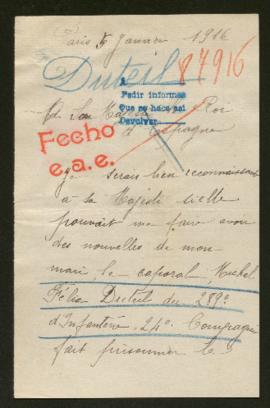 Paris 5 Janvier 1916
Duteil
87916
A
Pedir informes
Que se hace asi
Devolver
A Sa Majesté Roi
d'Espagne
Fecho
e.a.e.
Je serais bien reconnaissante
à sa Majesté si elle
pouvait me faire avoir
des nouvelles de mon
mari, le caporal Michel
Félix Duteil du 289e
d'Infanterie 24e Compagnie
fait prisonnier le